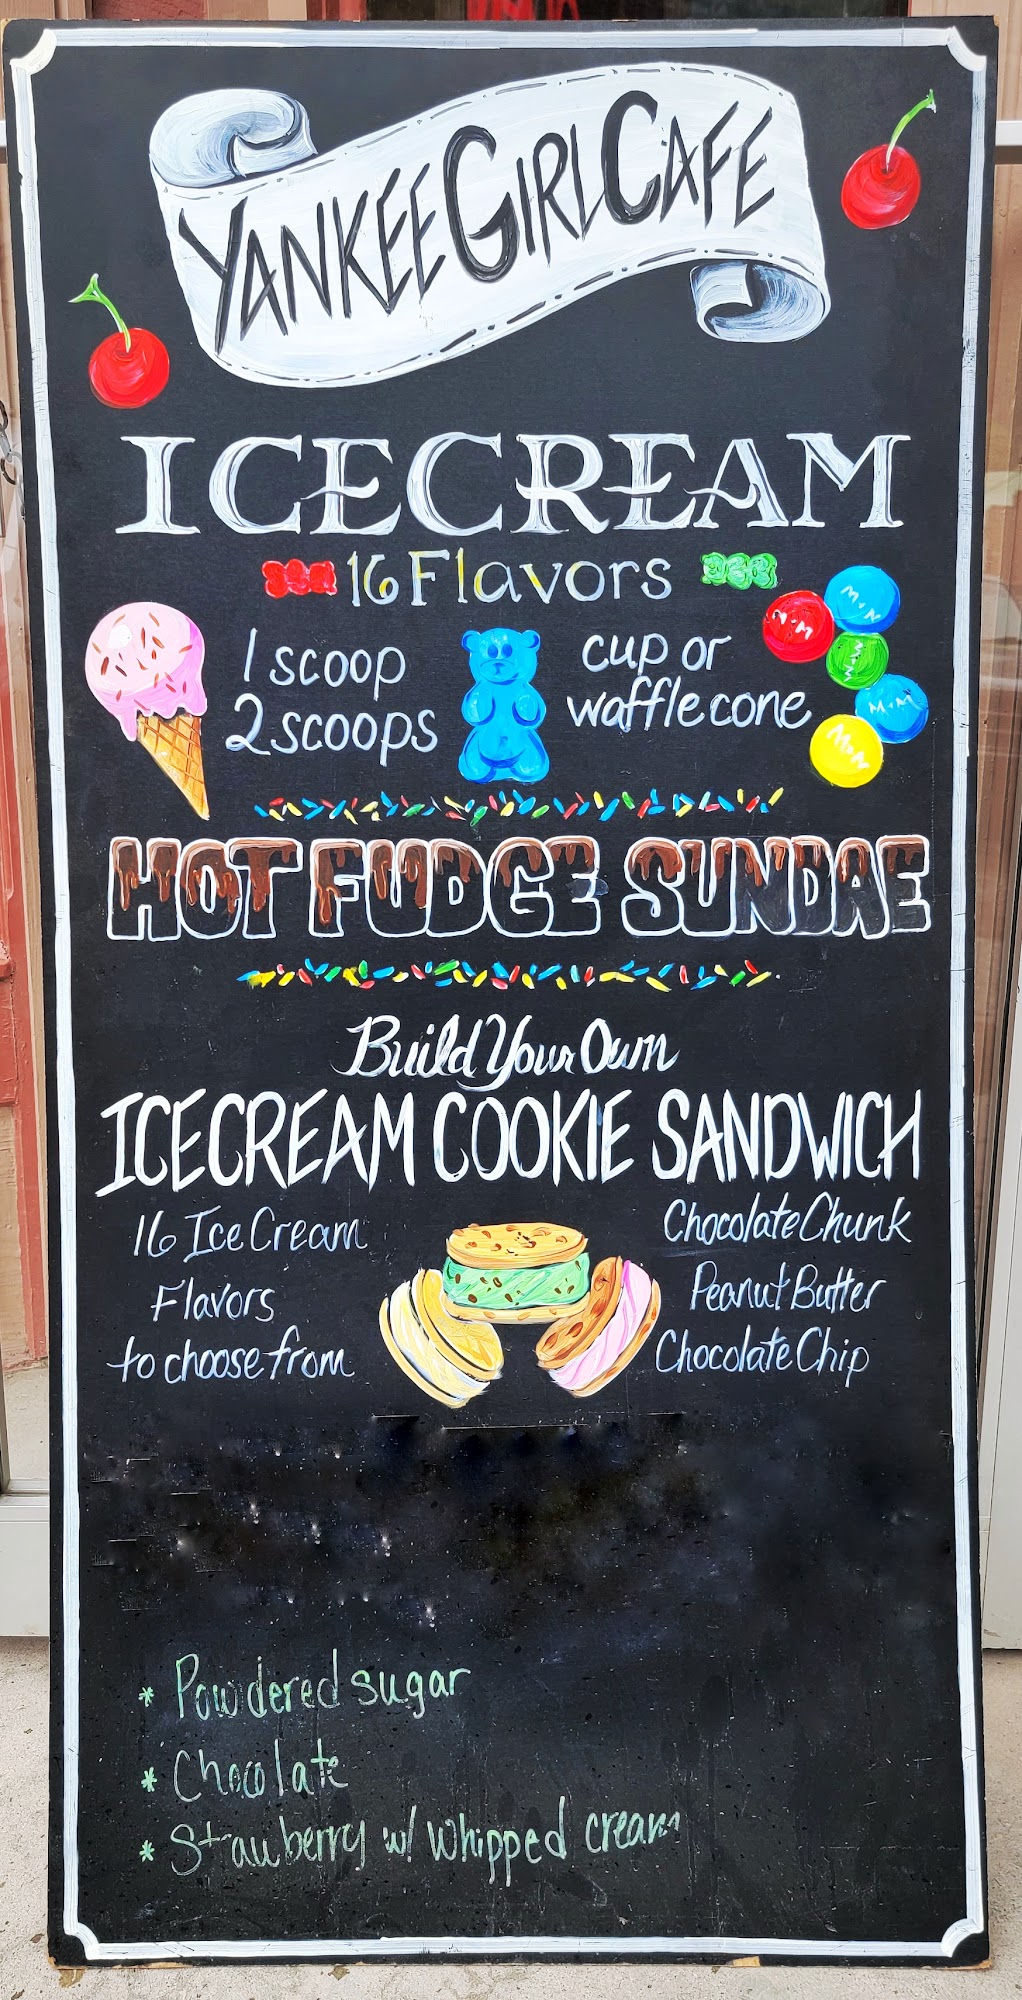 YANKEE GIRL CAFE
ICECREAM
16 Flavors
1 scoop
2 scoops
cup or
waffle cone
M&M
M&M
M&M
M&M
M&M
HOT FUDGE SUNDAE
Build Your Own
ICECREAM COOKIE SANDWICH
16 Ice Cream
Flavors
to choose from
Chocolate Chunk
Peanut Butter
Chocolate Chip
* Powdered sugar
* Chocolate
* Strawberry w/ whipped cream